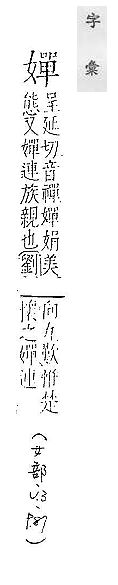 字彙
嬋
呈延切音禪嬋娟美
態又嬋連族親也劉
向九歎惟楚
懷之嬋連
（女部、